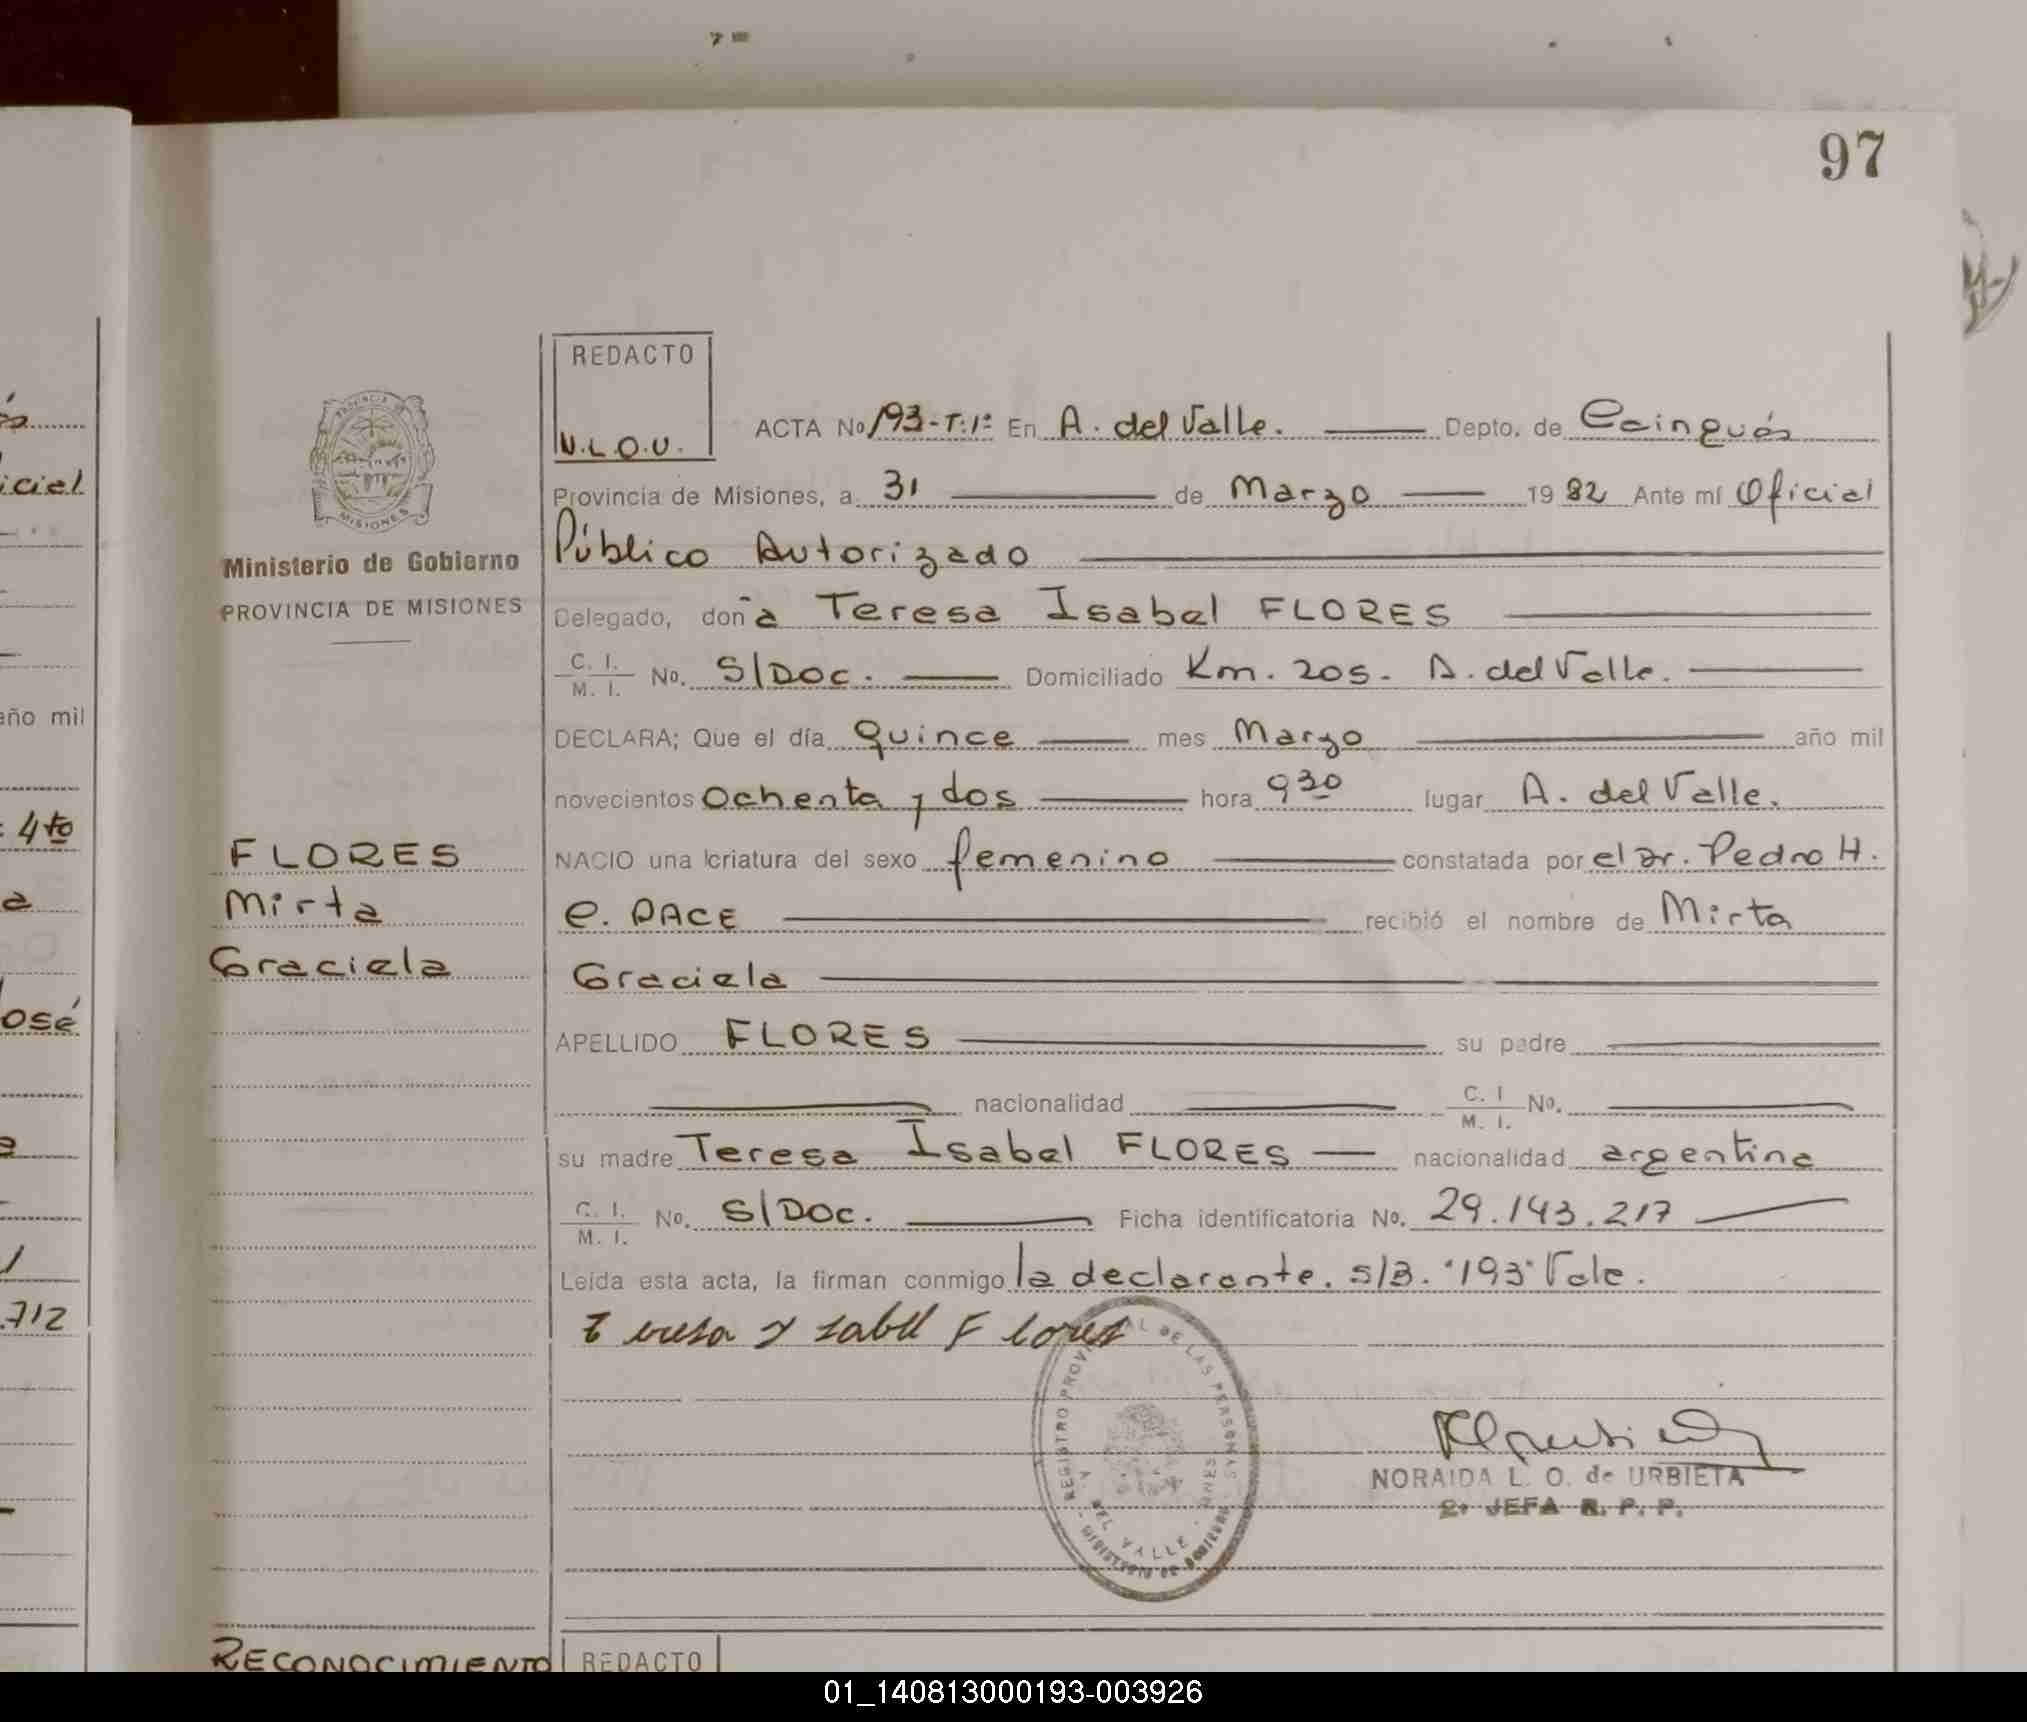 97
REDACTO
N.L.O.U.
ACTA No 193-T:1º En A. del Valle. Depto. de Cainguás
Provincia de Misiones, a 31 de Marzo 1982 Ante mí Oficial
Público Autorizado
Delegado, doña Teresa Isabel FLORES
C. I. / M. I. No. S/Doc. Domiciliado Km. 205. A. del Valle.
DECLARA; Que el día quince mes Marzo año mil
novecientos ochenta y dos hora 9 30 lugar A. del Valle.
NACIO una criatura del sexo femenino constatada por el Dr. Pedro H.
e. PACE recibió el nombre de Mirta
Graciela
APELLIDO FLORES su padre
nacionalidad C. I / M. I. No.
su madre Teresa Isabel FLORES nacionalidad argentina
C. I. / M. I. No. S/Doc. Ficha identificatoria No. 29.143.217
Leída esta acta, la firman conmigo la declarante. s/B. "193" Vale.
Teresa Ysabel Flores
REGISTRO PROVINCIAL DE LAS PERSONAS
A. DEL VALLE - MNES
MINISTERIO DE GOBIERNO
NORAIDA L. O. de URBIETA
2ª JEFA R. P. P.
PROVINCIA DE
MISIONES
Ministerio de Gobierno
PROVINCIA DE MISIONES
FLORES
Mirta
Graciela
RECONOCIMIENTO
REDACTO
icial
año mil
4to
a
José
.712
01_140813000193-003926